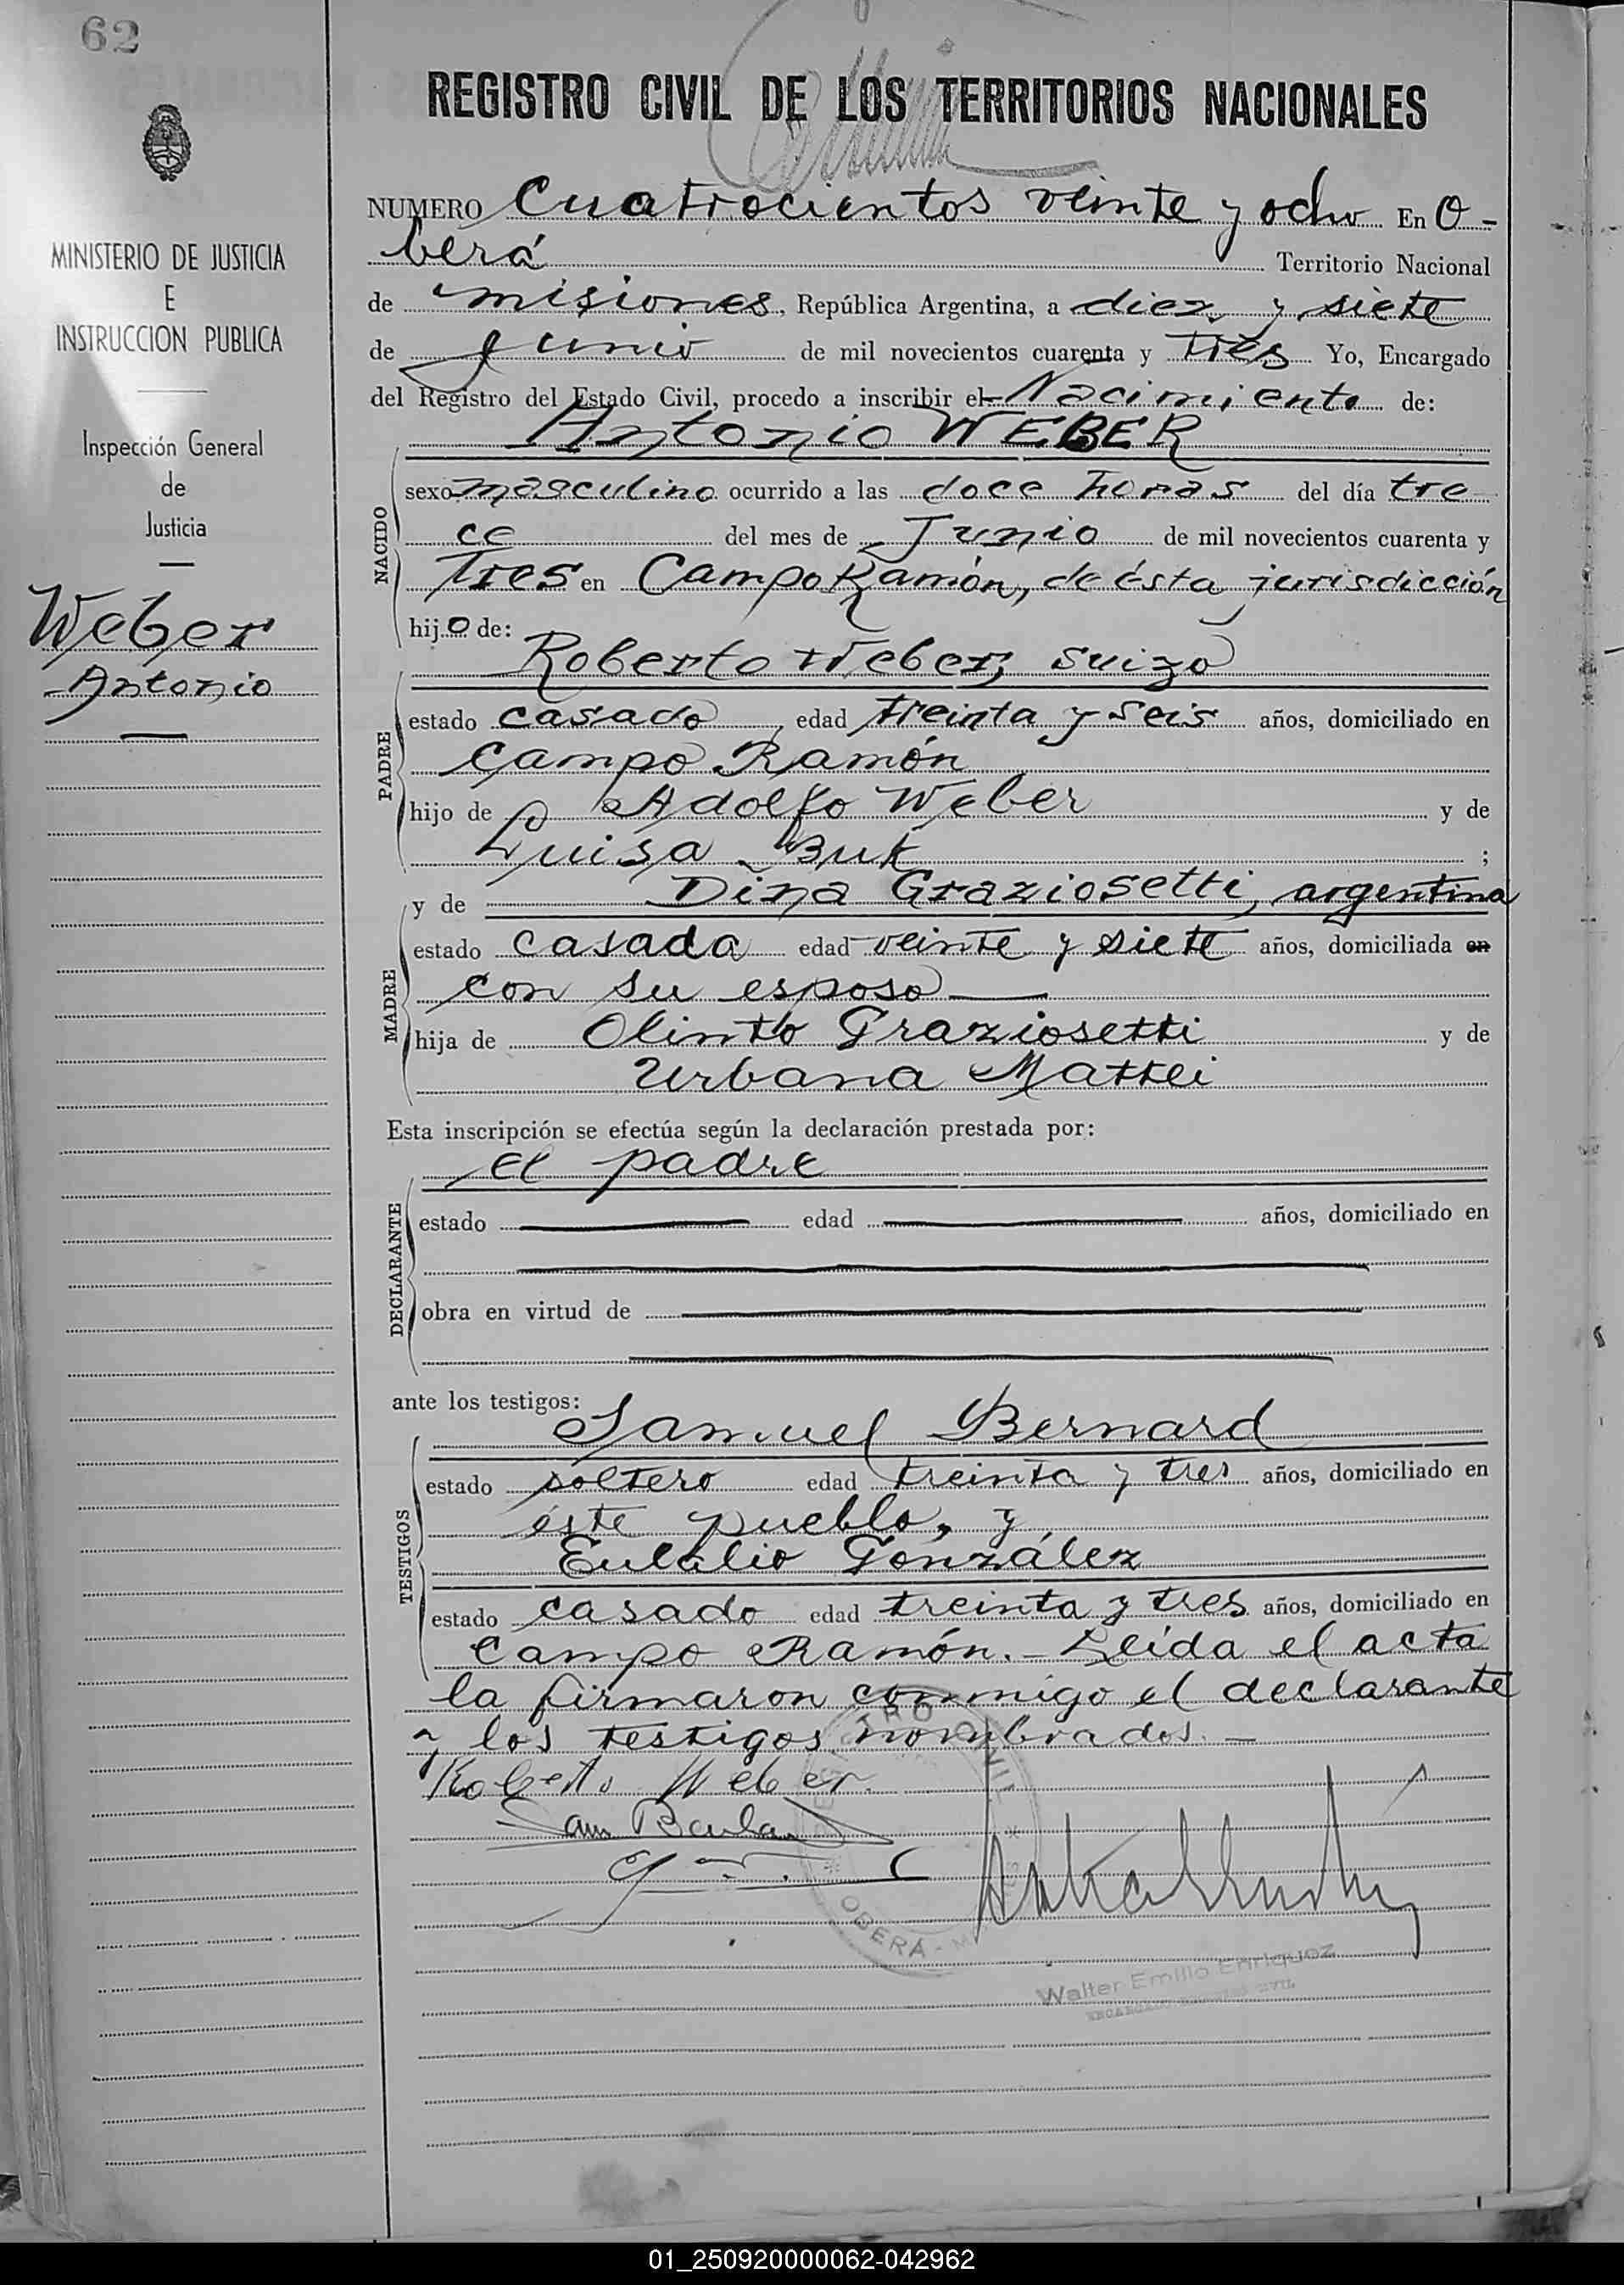 62
REGISTRO CIVIL DE LOS TERRITORIOS NACIONALES
MINISTERIO DE JUSTICIA
E
INSTRUCCION PUBLICA
Inspección General
de
Justicia
Weber
Antonio
NUMERO Cuatrocientos veinte y ocho En O-
berá Territorio Nacional
de misiones, República Argentina, a diez y siete
de Junio de mil novecientos cuarenta y tres Yo, Encargado
del Registro del Estado Civil, procedo a inscribir el Nacimiento de:
Antonio WEBER
NACIDO
sexo masculino ocurrido a las doce horas del día tre
ce del mes de Junio de mil novecientos cuarenta y
Tres en Campo Ramón, de ésta jurisdicción
hijo de:
Roberto Weber, suizo
PADRE
estado casado, edad treinta y seis años, domiciliado en
Campo Ramón
hijo de Adolfo Weber y de
Luisa Buk ;
y de Dina Graziosetti, argentina
MADRE
estado casada edad veinte y siete años, domiciliada en
con su esposo
hija de Olinto Graziosetti y de
Urbana Mattei
Esta inscripción se efectúa según la declaración prestada por:
el padre
DECLARANTE
estado edad años, domiciliado en
obra en virtud de
ante los testigos:
Samuel Bernard
TESTIGOS
estado soltero edad treinta y tres años, domiciliado en
éste pueblo, y
Eulalio González
estado casado edad treinta y tres años, domiciliado en
Campo Ramón.- Leída el acta
la firmaron conmigo el declarante
y los testigos nombrados.-
Roberto Weber
OBERÁ
Walter Emilio Enriquez
ENCARGADO REGISTRO CIVIL
01_250920000062-042962